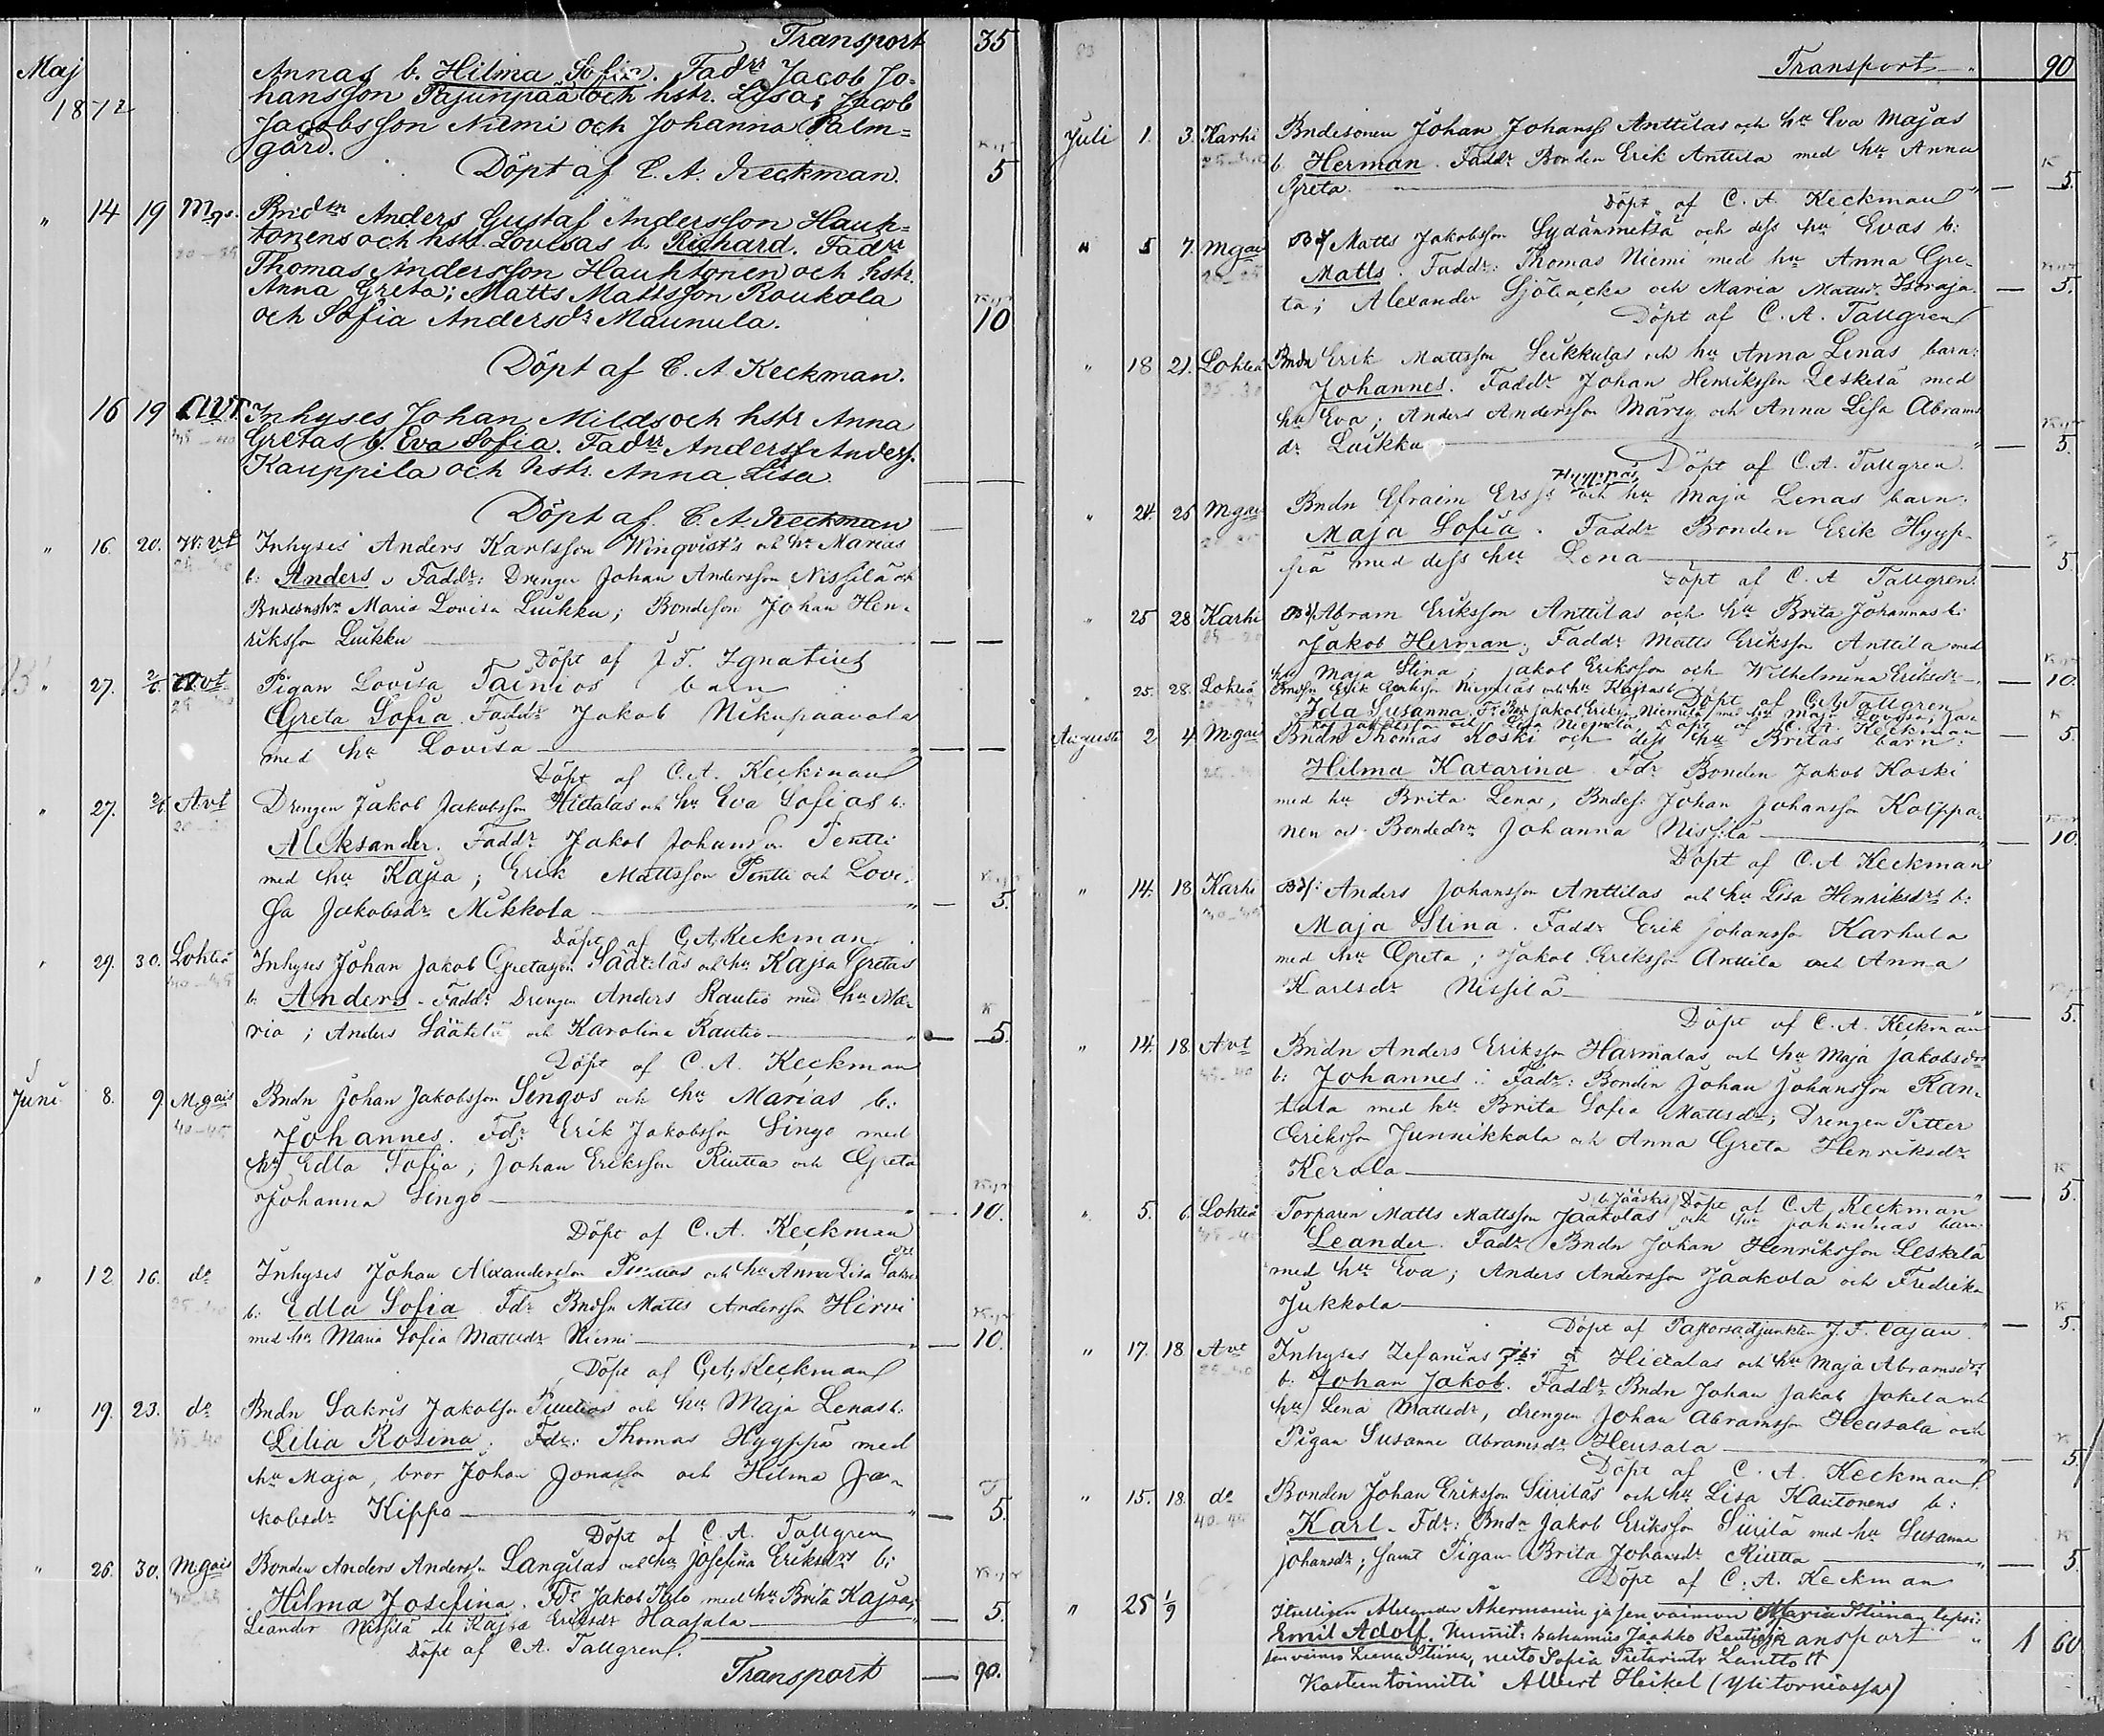 Transport 35
Maj
1872
Annas b. Hilma Sofia. Fadrr Jacob Jo-
hansson Pajunpää och hstr. Lisa; Jacob
Jacobsson Niemi och Johanna Palm-
gård.
Döpt af C. A. Keckman. 5
" 14 19 Mgs. Bndn Anders Gustaf Andersson Hauh-
tonens och hstr. Lovisas b. Richard. Fadrr
Thomas Andersson Hauhtonen och hstr.
Anna Greta; Matts Mattsson Roukola
och Sofia Andersdr Maunula. 10
Döpt af C. A. Keckman.
16 19 Inhyses Johan Milds och hstr Anna
Gretas b. Eva Sofia. Fadrr Anderss Anderss.
Kauppila och hstr. Anna Lisa
Döpt af C. A. Keckman
" 16. 20. Inhyses Anders Karlsson Winqvist's och hu Marias
b: Anders. Faddr: Drengen Johan Andersson Nissilä och
Maria Lovisa Luikku; Bondeson Johan Hen-
riksson Luikku
Döpt af J. F. Ignatius
" 27. 2/6. Avt Pigan Lovisa Tainios barn
Greta Sofia. Faddr Jakob Nikupaavola
med hu Lovisa
Döpt af C. A. Keckman
" 27. 2/6. Avt Drengen Jakob Jakobsson Hietalas och hu Eva Sofias b:
Aleksander. Faddr Jakob Johansson Pentti
med hu Kajsa; Erik Mattsson Pentti och Lovi-
sa Jakobsdr Mikkola 5.
Döpt af C. A. Keckman
" 29. 30. Lohteå Inhyses Johan Jakob Gretasson Säätiläs och hu Kajsa Gretas
b: Anders. Faddr Drengen Anders Rautio med hu Ma-
ria; Anders Säätilä och Karolina Rautio 5.
Döpt af C. A. Keckman
Juni 8. 9 M.gais Bndn Johan Jakobsson Singos och hu Marias b:
40-45
Johannes. Fdr Erik Jakobsson Singo med
hu Edla Sofia; Johan Eriksson Riutta och Greta
Johanna Singo 10.
Döpt af C. A. Keckman
" 12 16. do Inhyses Johan Alexandersson och hu Anna Lisa
b: Edla Sofia Fdr Bndsn Matts Andersson Hirvi
med hu Maria Sofia Mattsdr Niemi 10.
Döpt af C. A. Keckman
" 19. 23. do Bndn Sakris Jakobsson och hu Maja Lenas b:
Lilia Rosina. Fdr: Thomas Hyyppä med
hu Maja, bror Johan Jonasson och Hilma Ja-
kobsdr Kippo 5.
Döpt af C. A. Tallgren
" 26. 30. Mgais Bonden Anders Andersson Langilas och hu Josefina Eriksdrs b:
Hilma Josefina. Fdr Jakob Hylo med hu Brita Kajsa;
Leander Nissilä och Kajsa Eriksdr Haapala 5.
Döpt af C. A. Tallgren.
Transport 90.
Transport 90
Juli 1. 3. Karhi Bndesonen Johan Johanss Anttilas och hu Eva Majas
b. Herman. Faddr Bonden Erik Anttila med hu Anna
Greta. 5.
Döpt af C. A. Keckman
" 5 7. Mgais Matts Jakobsson Sydänmetsä och dess hu Evas b:
Matts. Faddr: Thomas Niemi med hu Anna Gre-
ta; Alexander Sjöbacka och Maria Mattsdr Isoraja 5.
Döpt af C. A. Tallgren
" 18 21. Lohteå Bndn Erik Mattsson Luikkulas och hu Anna Lenas barn:
25-30
Johannes. Faddr Johan Henriksson Leskelä med
hu Eva; Anders Andersson Märsy och Anna Lisa Abrams
dr Luikku 5.
Döpt af C. A. Tallgren.
" 24. 25 Mgais Bndn Efraim Erss Hyyppäs och hu Maja Lenas barn:
Maja Sofia. Faddr Bonden Erik Hyyp-
pä med dess hu Lena 5.
Döpt af C. A Tallgren.
" 25 28 Karhi Abram Eriksson Anttilas och hu Brita Johannas b:
Jakob Herman; Faddr Matts Eriksson Anttila med
hu Maja Stina; Jakob Eriksson och Wilhelmina Eriksdr 10.
Döpt af C. A. Tallgren
" 25. 28. Lohteå Bndsn Erik Eriksson Niemelas och hu Kajsas b
Ida Susanna. Jakob Eriks. Niemelä med hu Maja Lovisa, Ja-
kob Jakobsson och Lisa Niemelä. Döpt af C. A. Keckman 5.
Augusti 2 4. Mgais Bndn Thomas Koski och dess hu Britas barn:
Hilma Katarina Fdr Bonden Jakob Koski
med hu Brita Lena, Bndes: Johan Johansson Kolppa-
nen och Bondedrn Johanna Nissilä 10.
Döpt af C. A Keckman
" 14. 18 Karhi Anders Johansson Anttilas och hu Lisa Henriksdrs b:
Maja Stina. Faddr Erik Johansson Karhula
med hu Greta; Jakob Eriksson Anttila och Anna
Karlsdr Nissilä 5.
Döpt af C. A. Keckman
" 14. 18. Avt Bndn Anders Eriksson Harmalas och hu Maja Jakobsdrs
b: Johannes. Fadr: Bonden Johan Johansson Ran-
tala med hu Brita Sofia Mattsdr; Drengen Petter
Eriksson Junnikkala och Anna Greta Henriksdr
Kerola 5.
Döpt af C. A. Keckman
" 5. 6. Lohteå Torparen Matts Mattsson Jaakolas och hu Johannas barn
Leander. Fadr Bndn Johan Henriksson Leskelä
med hu Eva; Anders Andersson Jaakola och Fredrika
Jukkola 5.
Döpt af Pastorsadjunkten J. F. Cajan.
" 17. 18 Avt Inhyses Zefanias Hietalas och hu Maja Abramsdrs
b. Johan Jakob. Faddr Bndn Johan Jakob Jokela och
hu Lena Mattsdr, drengen Johan Abramsson Heusala och
Pigan Susanna Abramsdr Heusala 5
Döpt af C. A. Keckman
" 15. 18. do Bonden Johan Eriksson Siiriläs och hu Lisa Kautonens b:
40-45
Karl. Fdr: Bndn Jakob Eriksson Siirilä med hu Susanna
Johansdr; samt Pigan Brita Johansdr Riutta 5.
Döpt af C. A. Keckman
" 25 1/9 Itsellisen Alexander Åkermanin ja sen vaimon Maria Stiinan lapsi:
Emil Adolf. Kummit: Jaakko Rautio ja
sen vaimo Leena Stiina, neito Sofia Pietarintr Lantto
Transport 1 60
Kasteen toimitti Albert Heikel (Ylitorniossa)